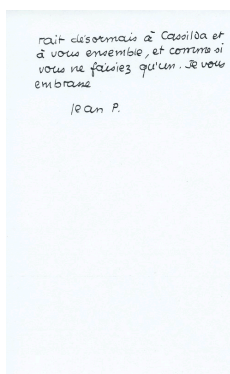 rait désormais à Cassilda et
à vous ensemble, et comme si
vous ne faisiez qu'un. Je vous
embrasse
Jean P.